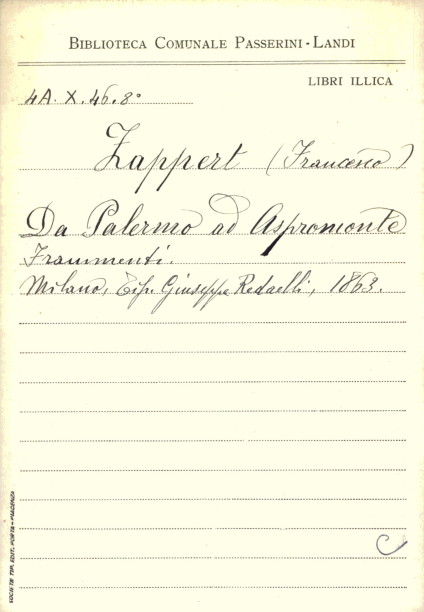 BIBLIOTECA COMUNALE PASSERINI-LANDI
LIBRI ILLICA
4A. X. 46. 8°
Zappert (Francesco)
Da Palermo ad Aspromonte
Frammenti.
Milano, Tip. Giuseppe Redaelli, 1863.
SOCIETÀ TIP. EDIT. PORTA - PIACENZA